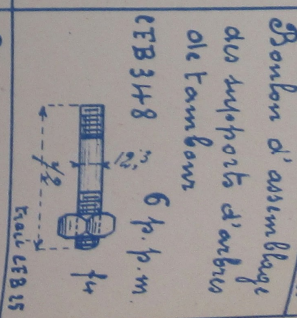 Boulon d'assemblage
des supports d'arbres
de tambour
CEB 3H8 6 p.p.m.
12,3
72
f4
tracé CEB 25